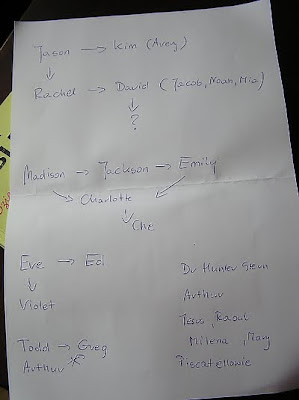 Jason → Kim (Avery)
↓ ↓
Rachel → David (Jacob, Noah, Mia)
↓
?
Madison → Jackson → Emily
Charlotte
↓
Che
Eve → Ed
↓
Violet
Todd → Greg
Arthur
Dr Hunter Stern
Arthur
Raoul
Milena, Mary